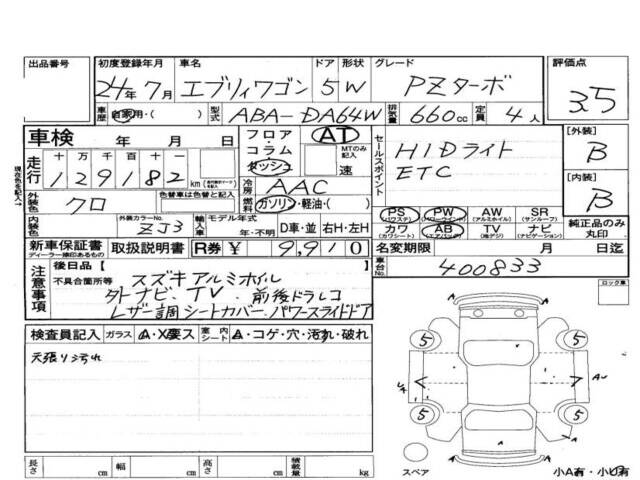 出品番号 初度登録年月 車名 ドア 形状 グレード 評価点
24年7月 エブリィワゴン 5 W PZターボ 3.5
車歴 自家用・( ) 型式 ABA-DA64W 排気量 660cc 定員 4人
車検 年 月 日 フロア・コラム・ダッシュ AT MTのみ記入 速
セールスポイント HIDライト
ETC
[外装] B
[内装] B
現在色を記入→
走行 十万千百十一 129182 km
冷房 AAC
外装色 クロ 色替車は色替と記入 ガソリン・軽油・( )
PS (パワステ) PW (パワーウインド) AW (アルミホイル) SR (サンルーフ)
カワ (カワシート) AB (エアバッグ) TV (地デジ) ナビ (ナビゲーション)
純正品のみ丸印
内装色 外装カラーNo. ZJ3 輸入車 モデル年式 年・不明 D車・並 右H・左H
新車保証書 ディーラー捺印あるもの 取扱説明書 R券 ¥ 9,910
名変期限 月 日迄
車台No. 400833
注意事項 後日品[ ]
不具合箇所等 スズキアルミホイル
外ナビ、TV、前後ドラレコ
レザー調シートカバー、パワースライドドア
ロック車
検査員記入 ガラス A・X要ス 室内シート A・コゲ・穴・汚れ・破れ
天張り汚れ
5 5
5 5
A A
スペア 小A有・小U有
長さ cm 幅 cm 高さ cm 積載量 kg